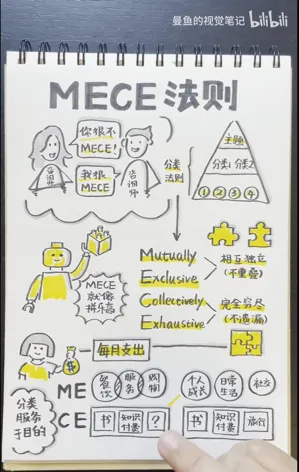 曼鱼的视觉笔记 bilibili
MECE法则
你很不
MECE!
我很
MECE
咨询师
咨询师
分类
法则
主题
分类1 分类2
① ② ③ ④
MECE
就像
拼乐高
Mutually
Exclusive
Collectively
Exhaustive
相互独立
(不重叠)
完全穷尽
(不遗漏)
每月支出
分类
服务
于目的
ME
餐饮 服务 购物
个人成长 日常生活 社交
CE
书 知识付费 ?
书 知识付费 旅行